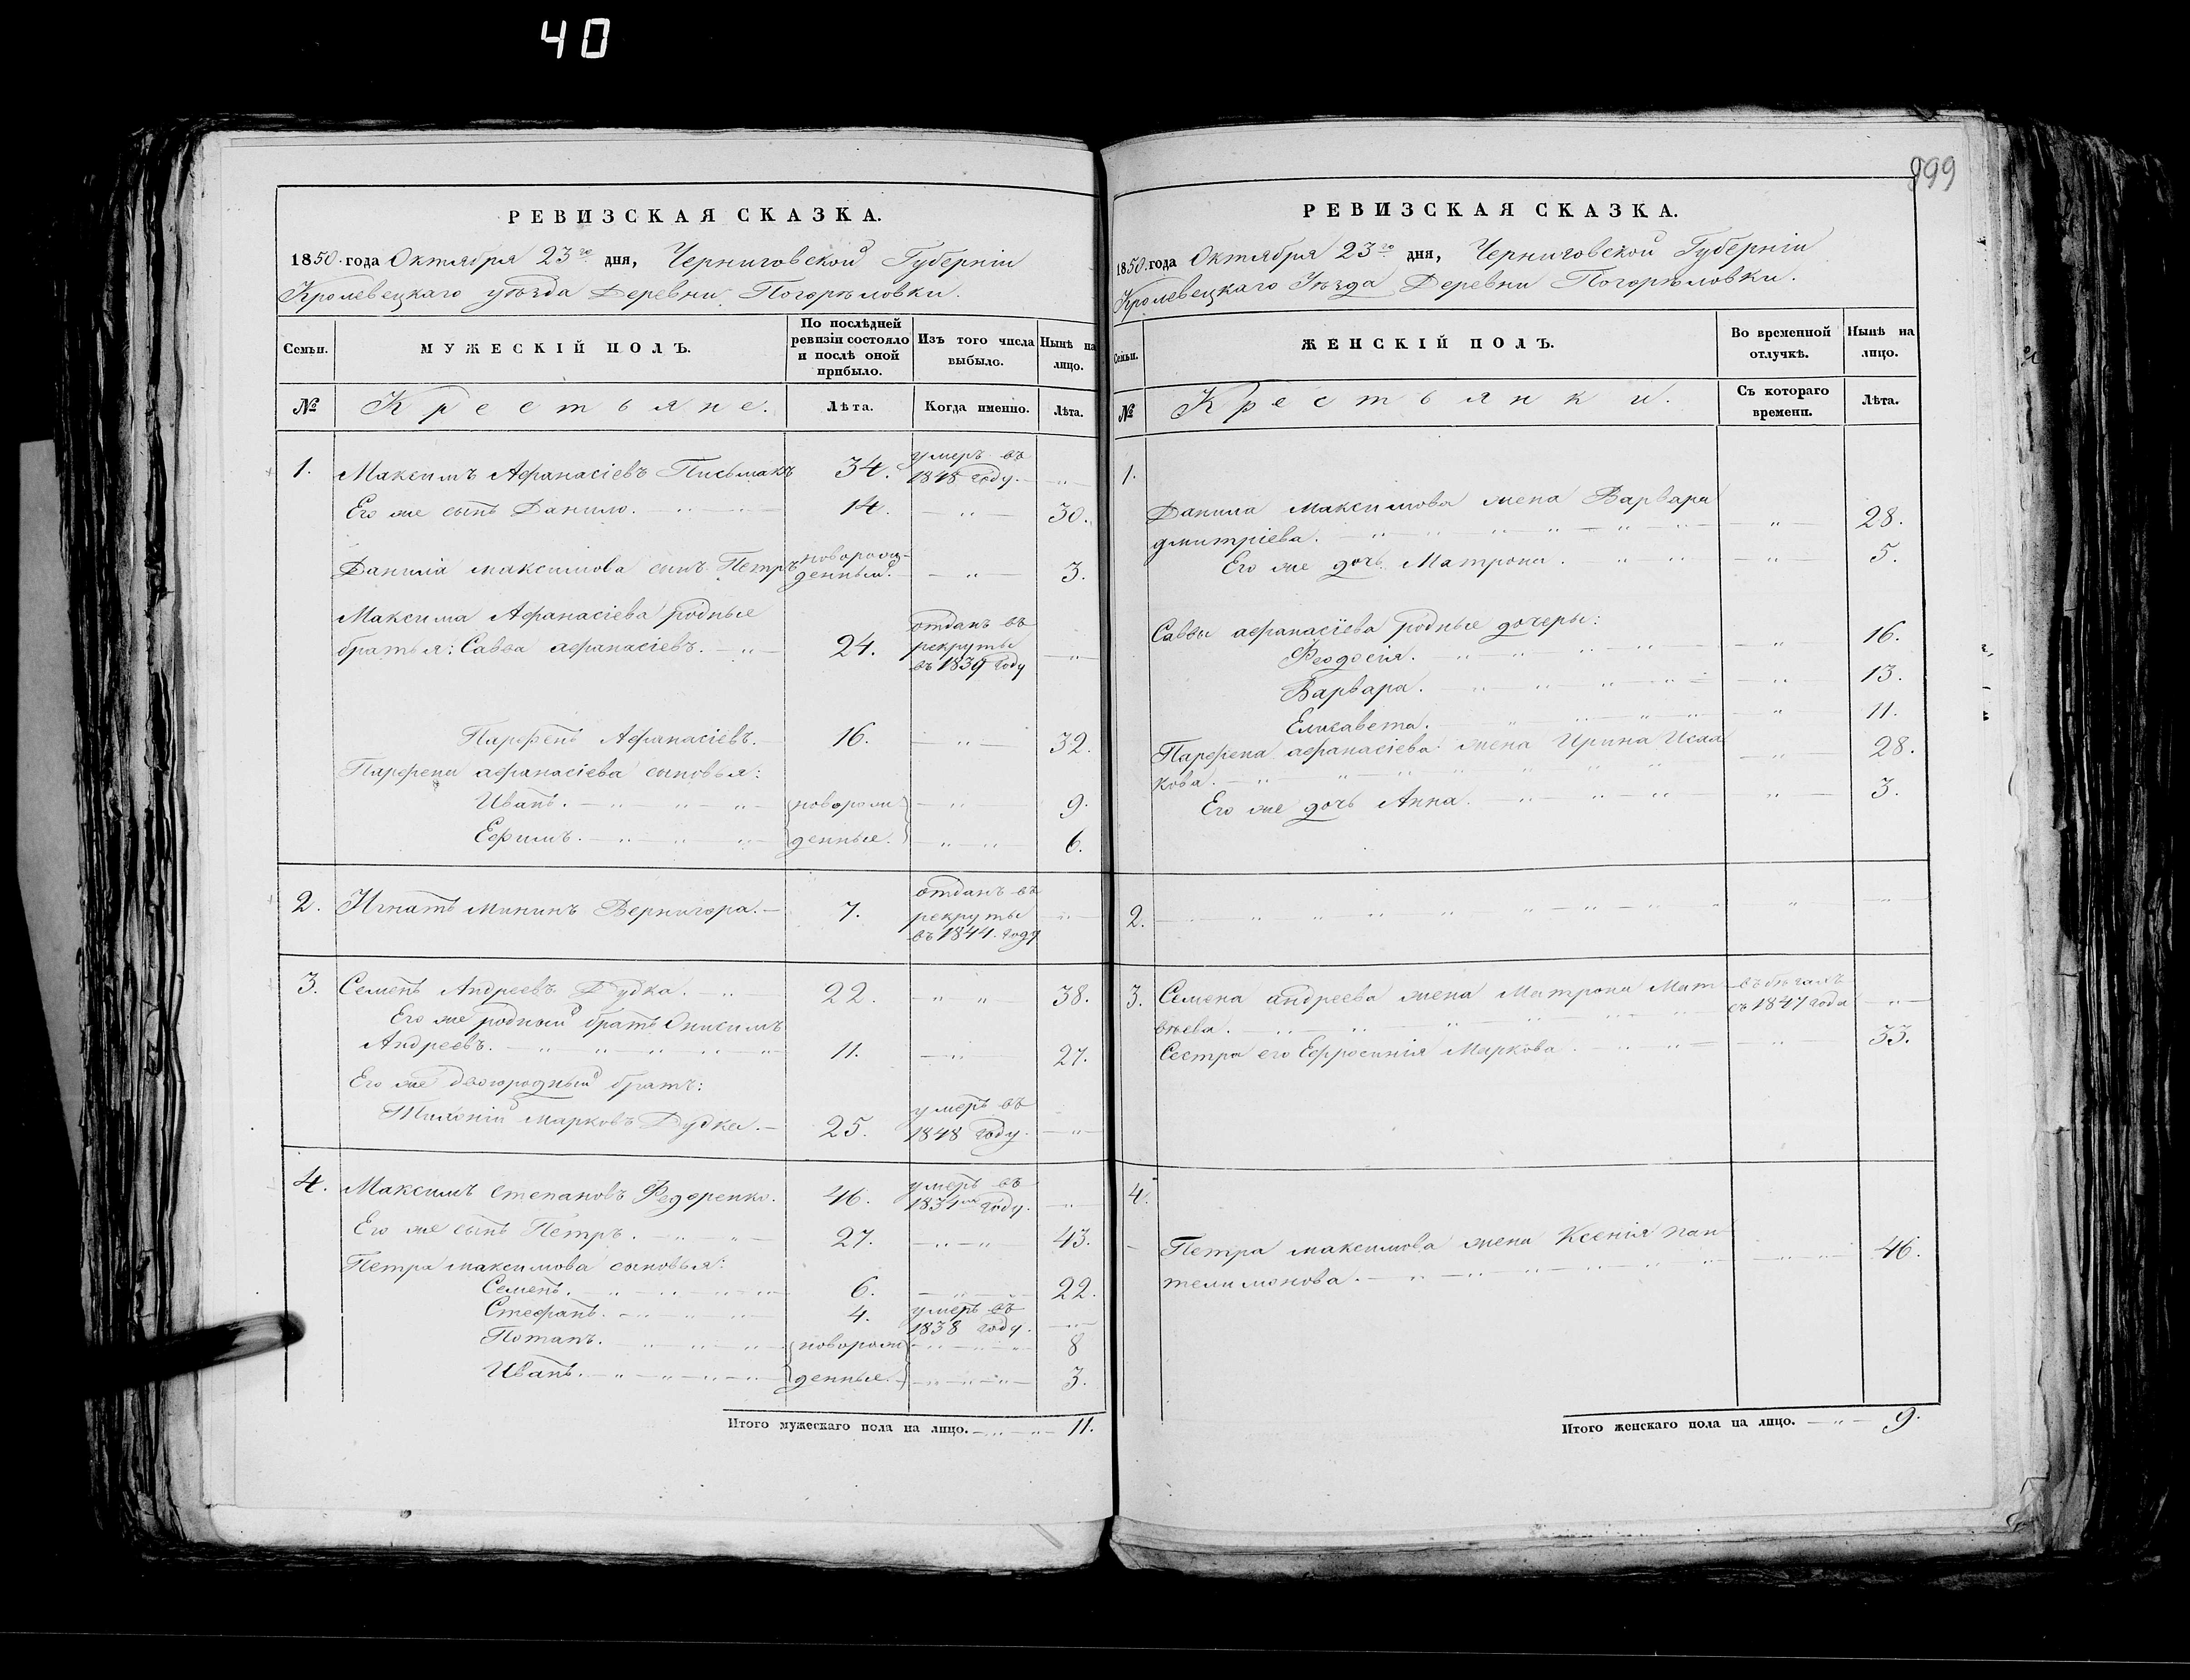 40
999
РЕВИЗСКАЯ СКАЗКА.
1850. года Октября 23го дня, Черниговской Губерніи
Кролевецкаго уѣзда Деревни Погорѣловки.
Семьи.
МУЖЕСКІЙ ПОЛЪ.
По послѣдней
ревизіи состояло
и послѣ оной
прибыло.
Изъ того числа
выбыло.
Нынѣ на
лицо.
№
Крестьяне.
Лѣта.
Когда именно.
Лѣта.
1. Максимъ Афанасіевъ Письмакъ 34. умеръ въ
1848 году.
Его же сынъ Данило. 14. 30.
Данила максимова сынъ Петръ новорож-
денный. 3.
Максима Афанасіева родные
братья: Савва афанасіевъ. 24. отданъ въ
рекруты
въ 1839 году
Парфенъ Афанасіевъ. 16. 32.
Парфена афанасіева сыновья:
Иванъ. новорож 9.
Ефимъ. денные. 6.
2. Игнатъ Мининъ Вернигора. 7. отданъ въ
рекруты
въ 1844. году
3. Семенъ Андреевъ Дудка. 22. 38.
Его же родный братъ Онисимъ
Андреевъ. 11. 27.
Его же двоюродный братъ:
Марковъ Дудка. 25. умеръ въ
1848 году.
4. Максимъ Степановъ Федоренко. 46. умеръ въ
году.
Его же сынъ Петръ. 27. 43.
Петра максимова сыновья:
Семенъ. 6. 22.
Стефанъ. 4. умеръ въ
1838 году.
Потапъ. новорож 8
Иванъ. денные. 3.
Итого мужескаго пола на лицо. 11.
РЕВИЗСКАЯ СКАЗКА.
1850. года Октября 23го дня, Черниговской Губерніи
Кролевецкаго Уѣзда Деревни Погорѣловки.
Семьи.
ЖЕНСКІЙ ПОЛЪ.
Во временной
отлучкѣ.
Нынѣ на
лицо.
№
Крестьянки.
Съ котораго
времени.
Лѣта.
1.
Данила максимова жена Варвара
дмитріева. 28.
Его же дочь Матрона. 5.
Саввы афанасіева родные дочеры:
Феодосія. 16.
Варвара. 13.
Елисавета. 11.
Парфена афанасіева жена Ирина Исаа
кова. 28.
Его же дочь Анна. 3.
2.
3. Семена андреева жена Матрона Мат въ бѣгахъ
вѣева. съ 1847 года
Сестра его Ефросинія Маркова. 33.
4.
Петра максимова жена Ксенія пан
телимонова. 46.
Итого женскаго пола на лицо. 9.